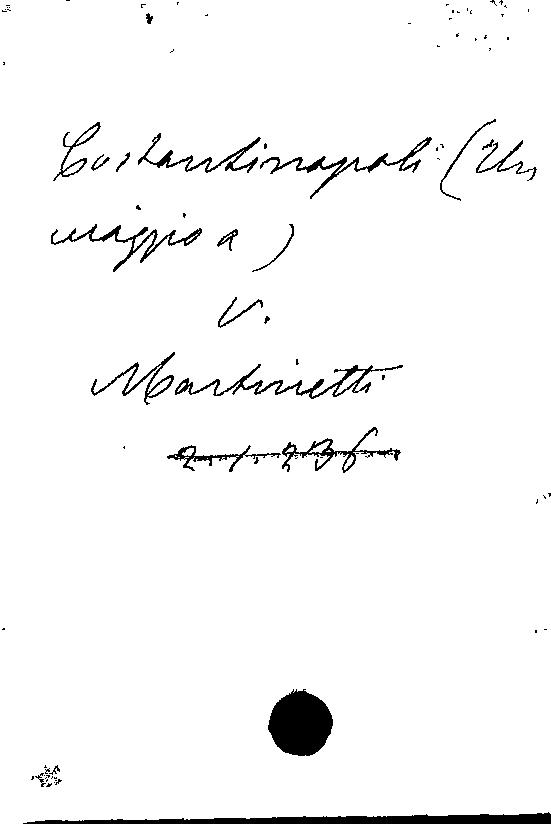 Costantinopoli (Un
viaggio a)
V.
Martinetti
2.1.236